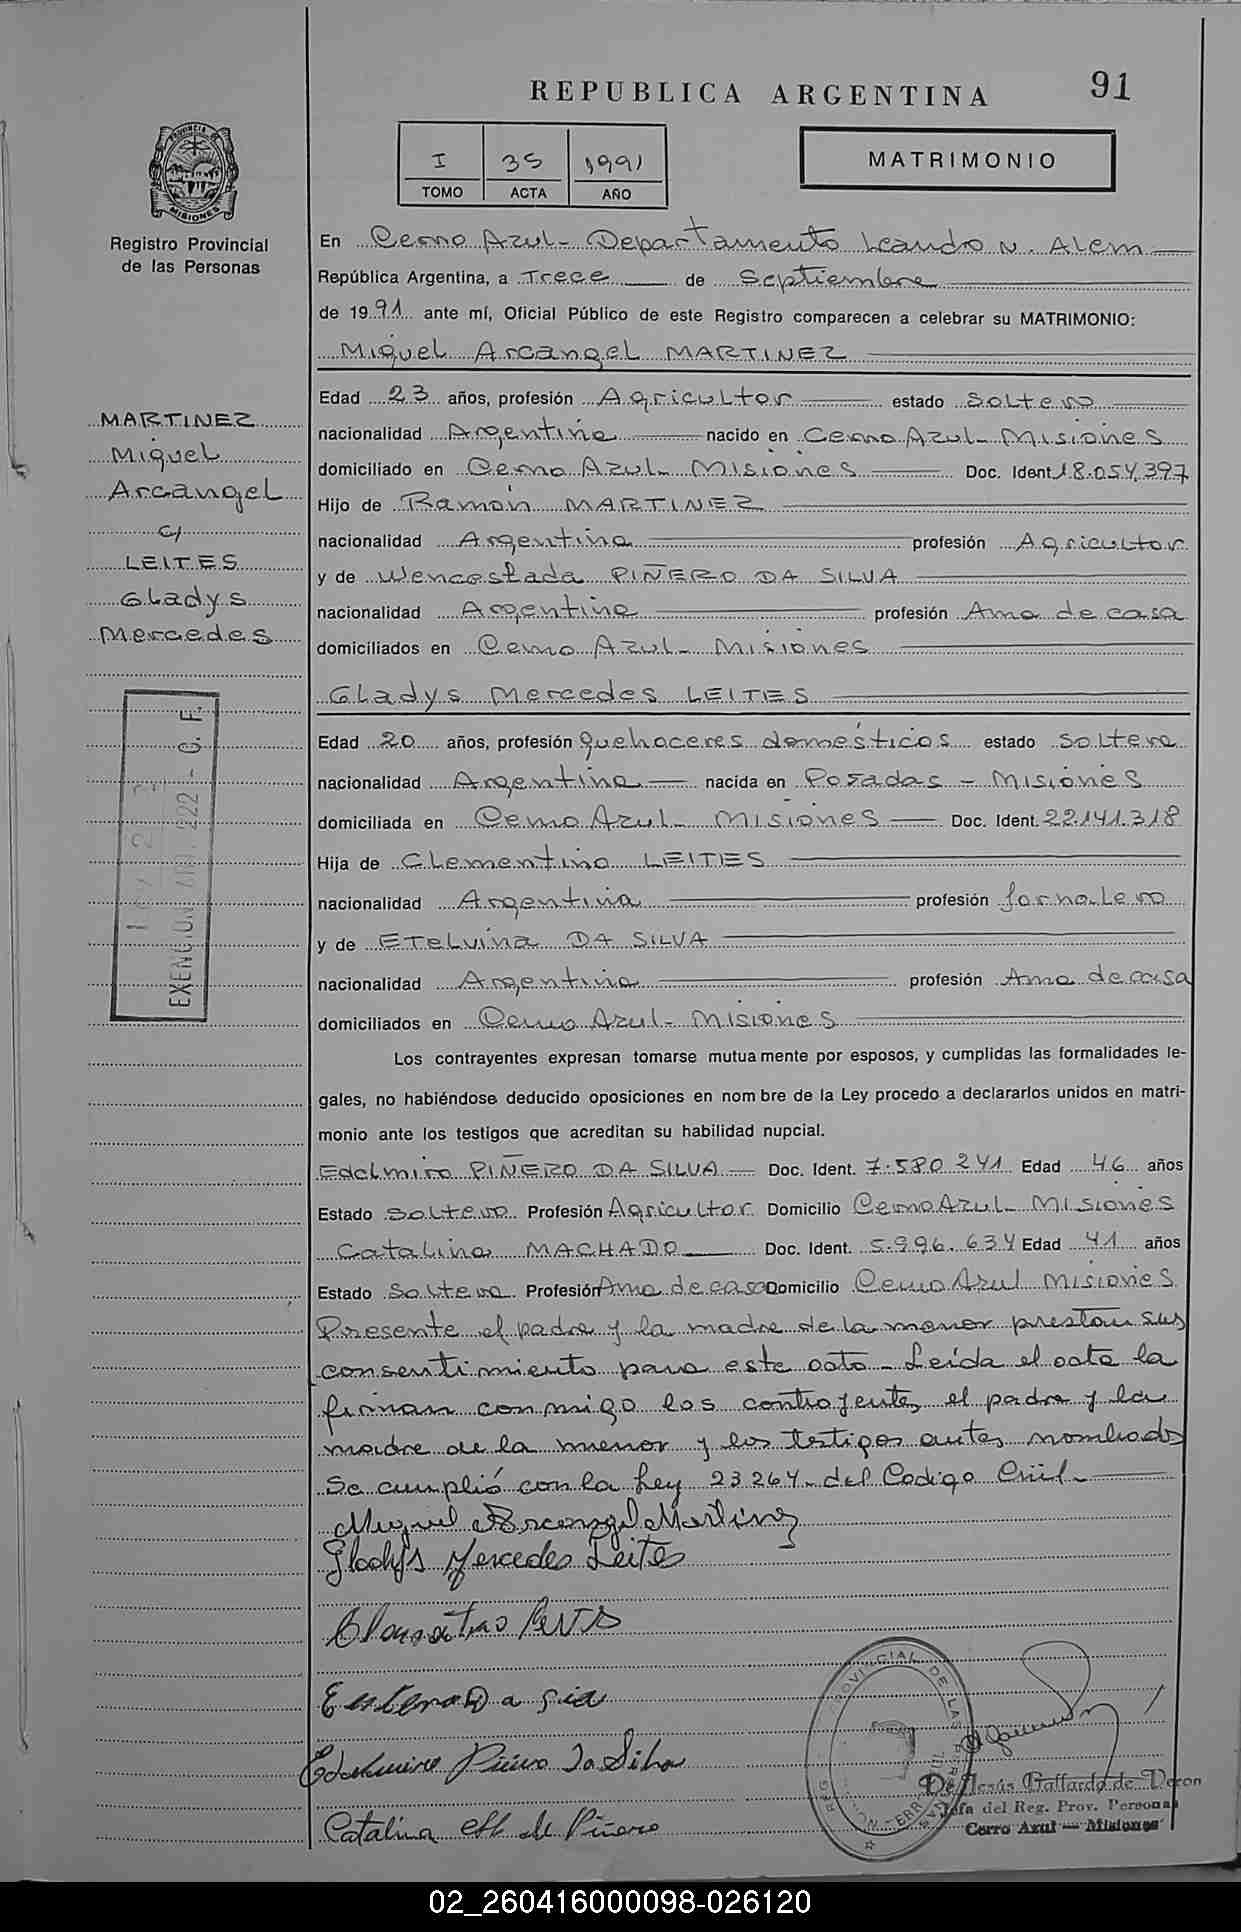 REPUBLICA ARGENTINA
91
I 35 1991
TOMO ACTA AÑO
MATRIMONIO
PROVINCIA DE
MISIONES
Registro Provincial
de las Personas
En Cerro Azul - Departamento Leandro N. Alem
República Argentina, a Trece de Septiembre
de 1991 ante mí, Oficial Público de este Registro comparecen a celebrar su MATRIMONIO:
Miguel Arcangel MARTINEZ
MARTINEZ
Miguel
Arcangel
c/
LEITES
Gladys
Mercedes
Edad 23 años, profesión Agricultor estado Soltero
nacionalidad Argentina nacido en Cerro Azul - Misiones
domiciliado en Cerro Azul - Misiones Doc. Ident 18.054.397
Hijo de Ramón MARTINEZ
nacionalidad Argentina profesión Agricultor
y de Wenceslada PIÑERO DA SILVA
nacionalidad Argentina profesión Ama de casa
domiciliados en Cerro Azul - Misiones
Gladys Mercedes LEITES
Edad 20 años, profesión quehaceres domésticos estado Soltera
nacionalidad Argentina nacida en Posadas - Misiones
domiciliada en Cerro Azul - Misiones Doc. Ident. 22.141.318
Hija de Clementino LEITES
nacionalidad Argentina profesión Jornalero
y de Etelvina DA SILVA
nacionalidad Argentina profesión Ama de casa
domiciliados en Cerro Azul - Misiones
EXENCION ART. 222 - C. F.
Los contrayentes expresan tomarse mutuamente por esposos, y cumplidas las formalidades le-
gales, no habiéndose deducido oposiciones en nombre de la Ley procedo a declararlos unidos en matri-
monio ante los testigos que acreditan su habilidad nupcial.
Edelmiro PIÑERO DA SILVA Doc. Ident. 7.580 241 Edad 46 años
Estado Soltero Profesión Agricultor Domicilio Cerro Azul - Misiones
Catalina MACHADO Doc. Ident. 5.996.634 Edad 41 años
Estado Soltera Profesión Ama de casa Domicilio Cerro Azul Misiones
Presente el padre y la madre de la menor prestan sus
consentimiento para este acto - Leída el acta la
firman conmigo los contrayentes, el padre y la
madre de la menor y los testigos antes nombrados
Se cumplió con la Ley 23264 - del Codigo Civil -
Miguel Arcangel Martinez
Gladys Mercedes Leites
Edelmiro Piñero Da Silva
Catalina de Piñero
PROVINCIAL DE LAS
De Jesús Gallardo de Veron
Jefa del Reg. Prov. Personas
Cerro Azul — Misiones
02_260416000098-026120